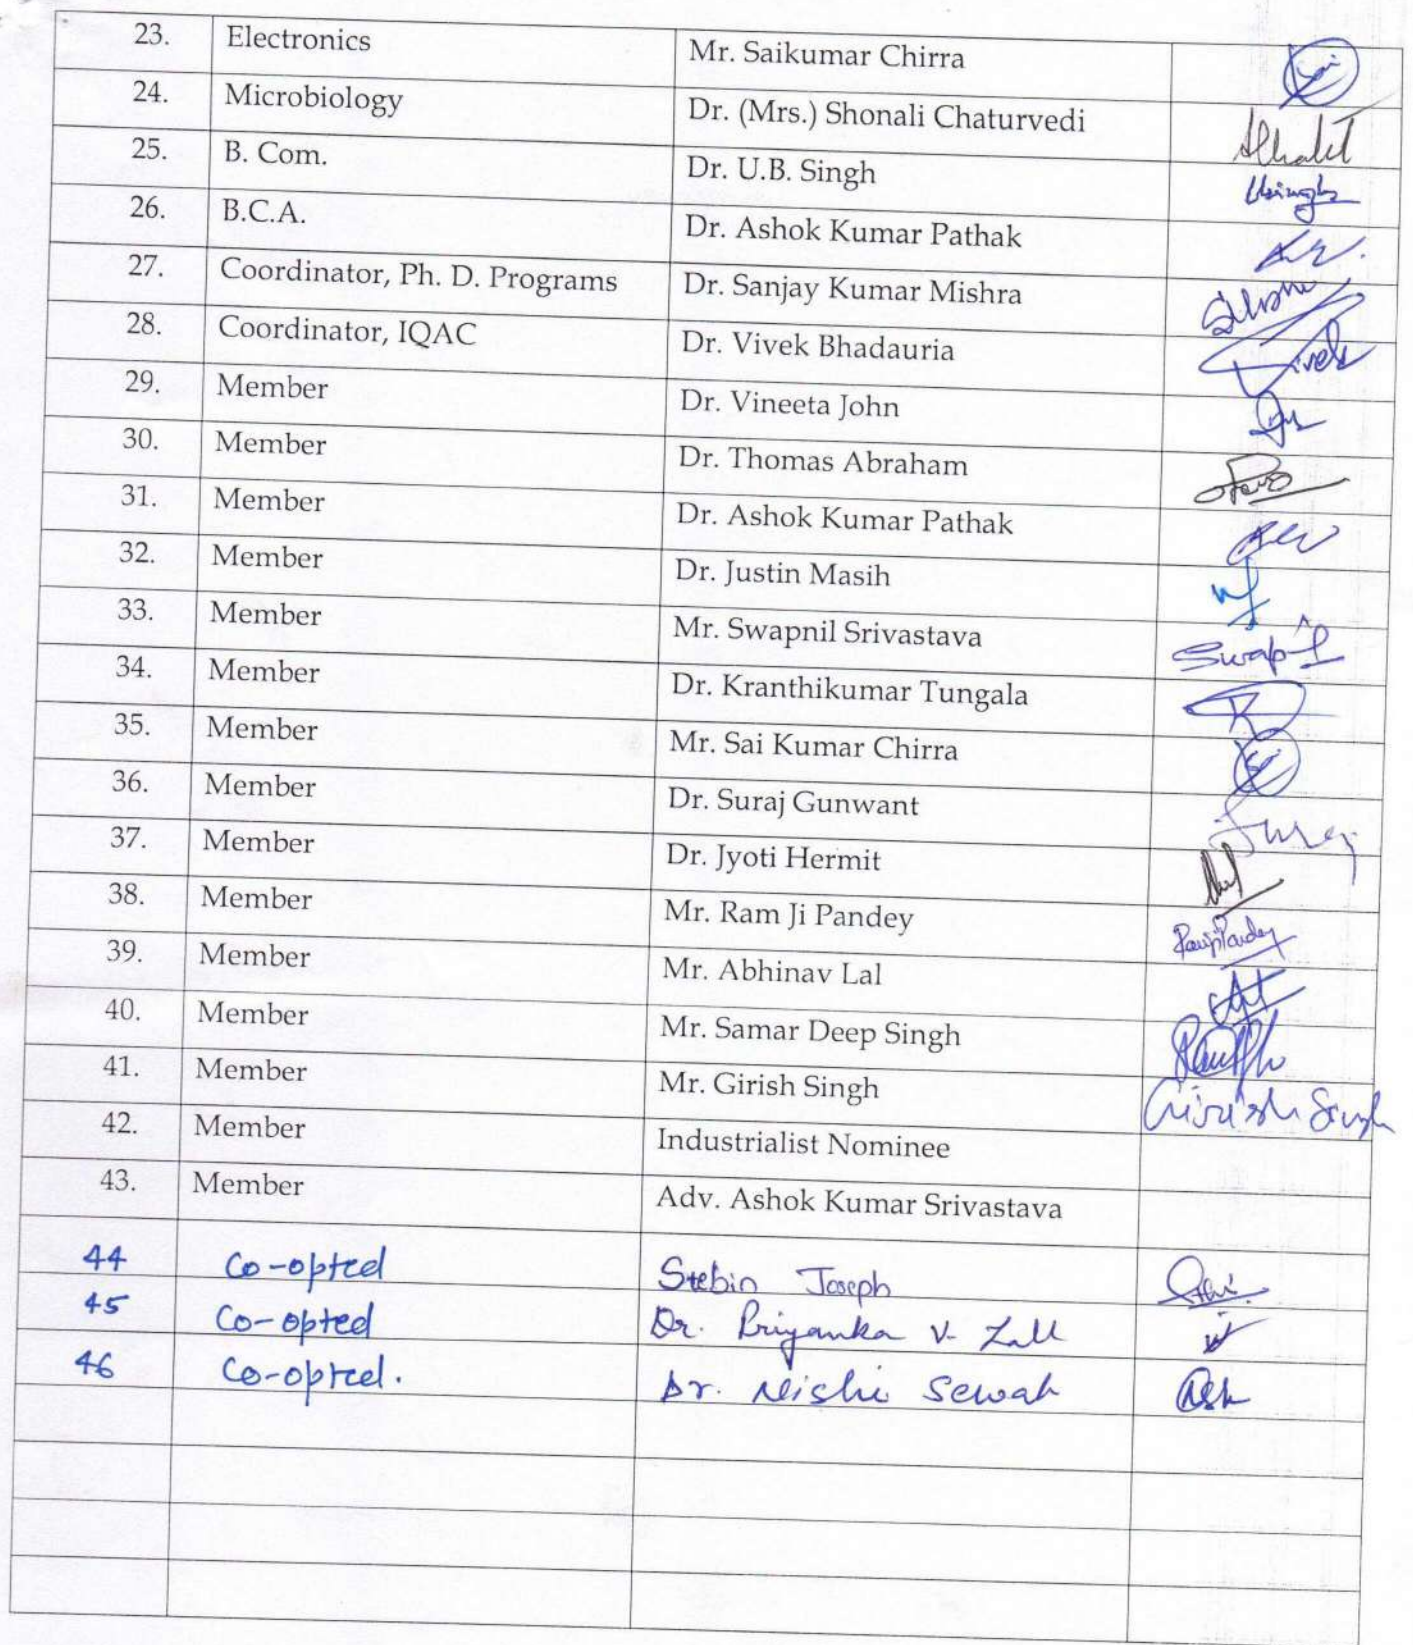 23. Electronics Mr. Saikumar Chirra Sai
24. Microbiology Dr. (Mrs.) Shonali Chaturvedi
25. B. Com. Dr. U.B. Singh Ubsingh
26. B.C.A. Dr. Ashok Kumar Pathak
27. Coordinator, Ph. D. Programs Dr. Sanjay Kumar Mishra
28. Coordinator, IQAC Dr. Vivek Bhadauria Vivek
29. Member Dr. Vineeta John
30. Member Dr. Thomas Abraham
31. Member Dr. Ashok Kumar Pathak
32. Member Dr. Justin Masih
33. Member Mr. Swapnil Srivastava
34. Member Dr. Kranthikumar Tungala
35. Member Mr. Sai Kumar Chirra
36. Member Dr. Suraj Gunwant Suraj
37. Member Dr. Jyoti Hermit
38. Member Mr. Ram Ji Pandey RamjiPandey
39. Member Mr. Abhinav Lal
40. Member Mr. Samar Deep Singh
41. Member Mr. Girish Singh Girish Singh
42. Member Industrialist Nominee
43. Member Adv. Ashok Kumar Srivastava
44 Co-opted Stebin Joseph
45 Co-opted Dr. Priyanka V. Lall
46 Co-opted. Dr. Nishi Sewak